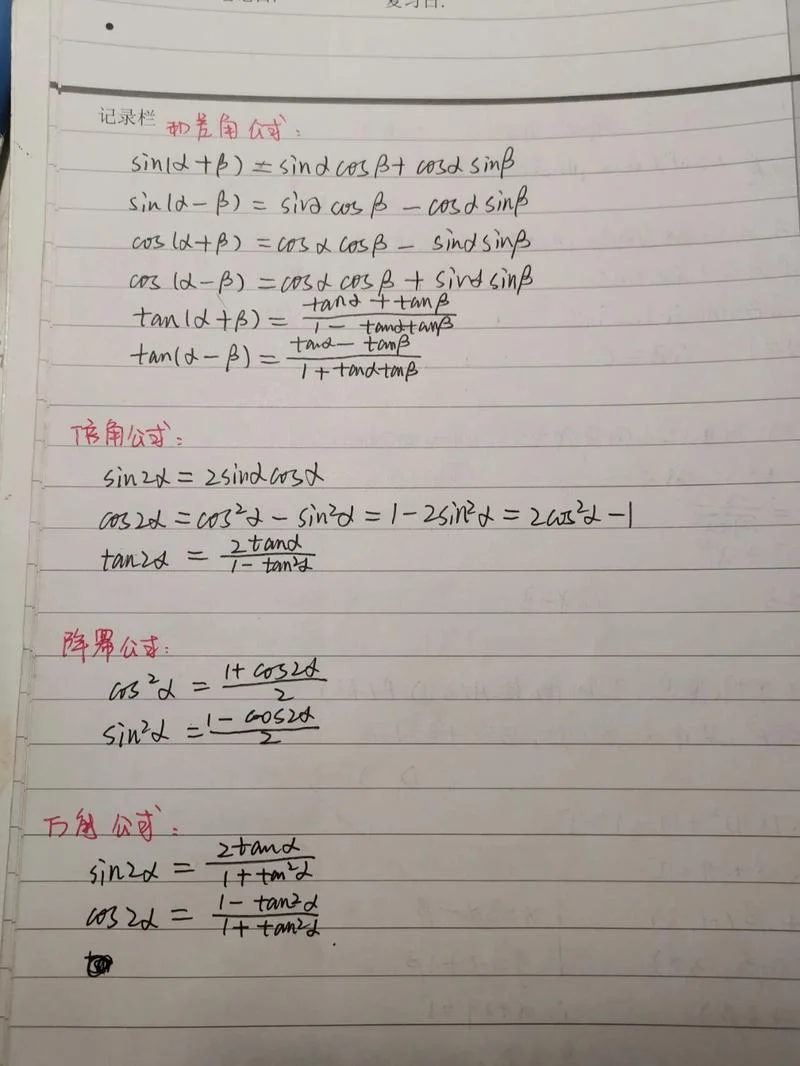 复习日:
记录栏 和差角公式:
sin(α+β)=sinαcosβ+cosαsinβ
sin(α-β)=sinαcosβ-cosαsinβ
cos(α+β)=cosαcosβ-sinαsinβ
cos(α-β)=cosαcosβ+sinαsinβ
tan(α+β)=\frac{tanα+tanβ}{1-tanαtanβ}
tan(α-β)=\frac{tanα-tanβ}{1+tanαtanβ}
倍角公式:
sin2α=2sinαcosα
cos2α=cos²α-sin²α=1-2sin²α=2cos²α-1
tan2α=\frac{2tanα}{1-tan²α}
降幂公式:
cos²α=\frac{1+cos2α}{2}
sin²α=\frac{1-cos2α}{2}
万角公式:
sin2α=\frac{2tanα}{1+tan²α}
cos2α=\frac{1-tan²α}{1+tan²α}